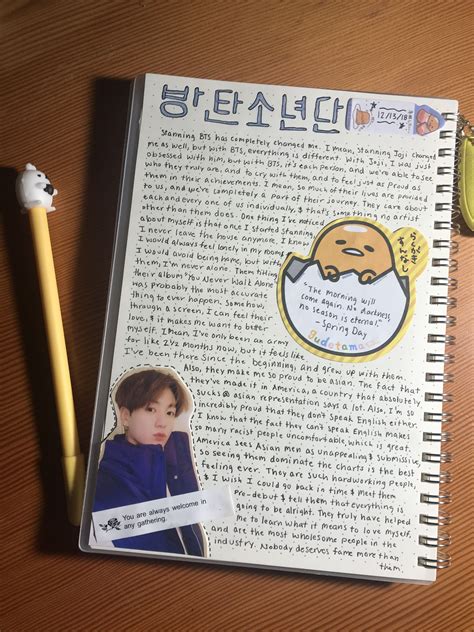 방탄소년단
12/13/18
Stanning BTS has completely changed me. I mean, stanning Joji changed
me as well, but with BTS, everything is different. With Joji, I was just
obsessed with him, but with BTS, it's each person, and we're able to see
who they truly are, and to cry with them, and to feel just as proud as
them in their achievements. I mean, so much of their lives are provided
to us, and we're completely a part of their journey. They care about
each and every one of us individually, & that's something no artist
other than them does. One thing I've noticed
about myself is that once I started stanning
I never leave the house anymore, I know
I would always feel lonely in my room &
I would avoid being home, but with
them, I'm never alone. Them titling
their album "You Never Walk Alone"
was probably the most accurate
thing to ever happen. Somehow,
through a screen, I can feel their
love, & it makes me want to better
myself. I mean I've only been an army
for like 2½ months now, but it feels like
I've been there since the beginning, and grew up with them.
らくがき
すんなし
"The morning will
come again. No darkness,
no season is eternal."
- Spring Day
gudetama
Also, they make me so proud to be asian. The fact that
they've made it in America, a country that absolutely
sucks @ asian representation says a lot. Also, I'm so
incredibly proud that they don't speak English either.
I know that the fact they can't speak English makes
so many racist people uncomfortable, which is great.
America sees Asian men as unappealing & submissive,
so seeing them dominate the charts is the best
feeling ever. They are such hardworking people,
& I wish I could go back in time & meet them
pro-debut & tell them that everything is
going to be alright. They truly have helped
me to learn what it means to love myself,
and are the most wholesome people in the
industry. Nobody deserves fame more than
them.
You are always welcome in
any gathering.